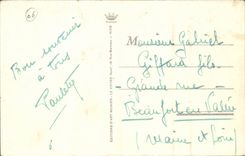 06
Bon souvenir
à tous
Paulette
Monsieur Gabriel
Giffard fils
- Grande rue -
Beaufort en Vallée
(Maine et Loire)